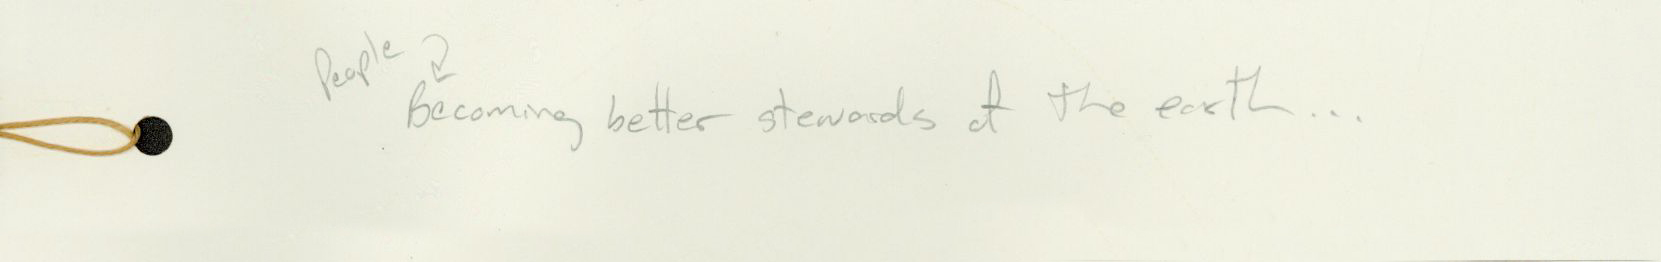 People
Becoming better stewards of the earth...